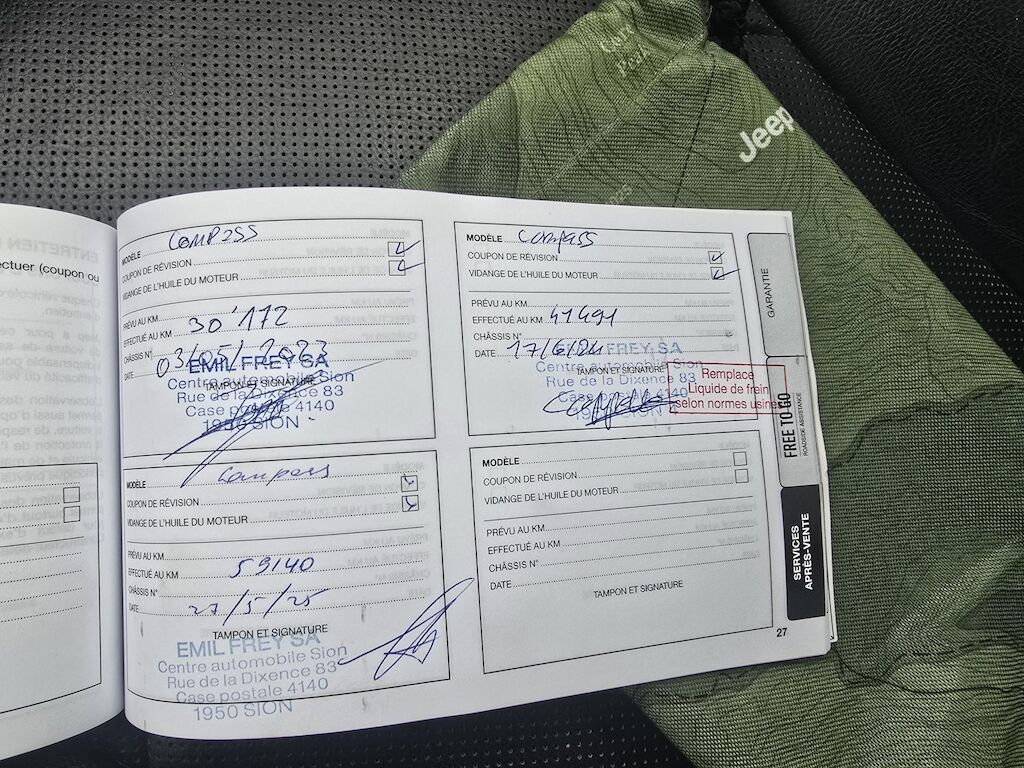 Jeep
ectuer (coupon ou
MODÈLE Compass
COUPON DE RÉVISION
VIDANGE DE L'HUILE DU MOTEUR
PRÉVU AU KM
EFFECTUÉ AU KM 30'172
CHÂSSIS N°
DATE 03/05/2023
TAMPON ET SIGNATURE
EMIL FREY SA
Centre automobile Sion
Rue de la Dixence 83
Case postale 4140
1950 SION
MODÈLE Compass
COUPON DE RÉVISION
VIDANGE DE L'HUILE DU MOTEUR
PRÉVU AU KM
EFFECTUÉ AU KM 41491
CHÂSSIS N°
DATE 17/6/24
TAMPON ET SIGNATURE
EMIL FREY SA
Centre automobile Sion
Rue de la Dixence 83
Case postale 4140
1950 SION
Remplace
Liquide de frein
selon normes usine
MODÈLE Compass
COUPON DE RÉVISION
VIDANGE DE L'HUILE DU MOTEUR
PRÉVU AU KM
EFFECTUÉ AU KM 59140
CHÂSSIS N°
DATE 27/5/25
TAMPON ET SIGNATURE
EMIL FREY SA
Centre automobile Sion
Rue de la Dixence 83
Case postale 4140
1950 SION
MODÈLE
COUPON DE RÉVISION
VIDANGE DE L'HUILE DU MOTEUR
PRÉVU AU KM
EFFECTUÉ AU KM
CHÂSSIS N°
DATE
TAMPON ET SIGNATURE
27
GARANTIE
FREE TO GO
ROADSIDE ASSISTANCE
SERVICES
APRÈS-VENTE